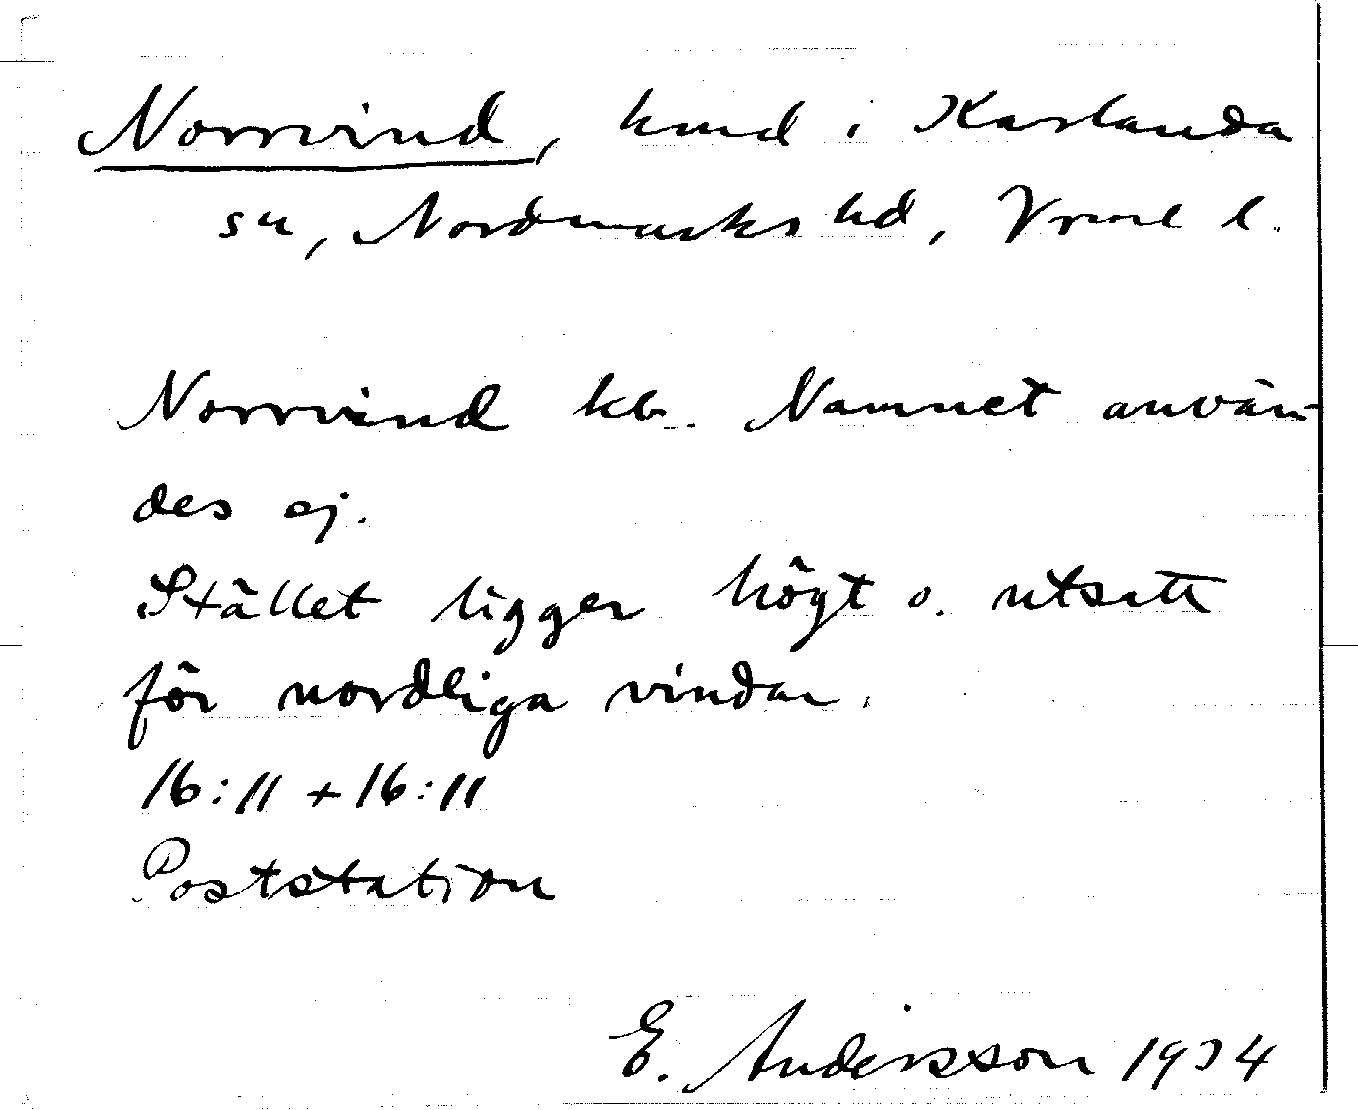 Norrvind, hmd i Karlanda
sn, Nordmarks hd, Vrml l.
Norrvind kb. Namnet använ-
des ej.
Stället ligger högt o. utsatt
för nordliga vindar.
16:11 + 16:11
Poststation
E. Andersson 1934